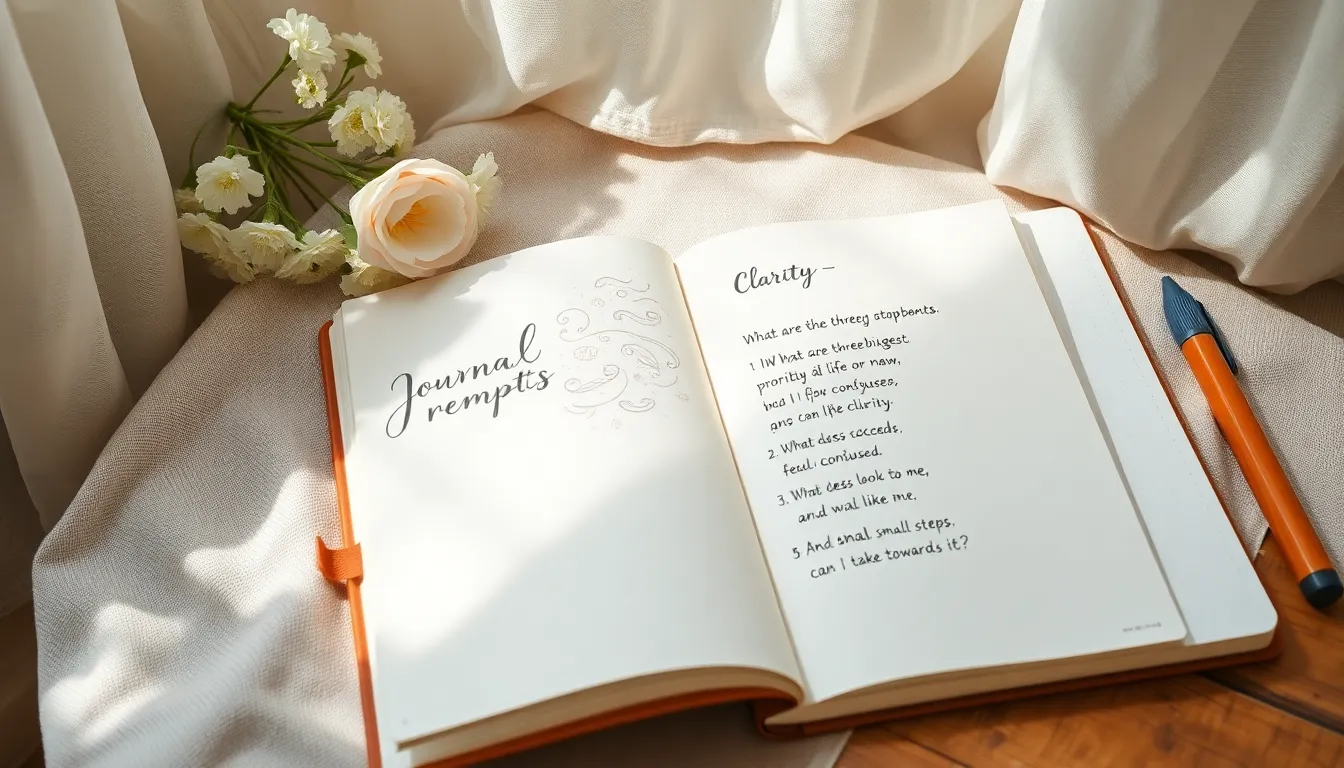 Journal
rempts
Clarity –
What are the threey stopbents.
1 IW What are threebiggest
priority al life or now,
had I I fjow confyuses,
ans can like clarity.
2. What dass roceeds,
feeul, coniused.
3. What cess look to me,
and wal like me.
5 And snal small steps,
can I take towards it?